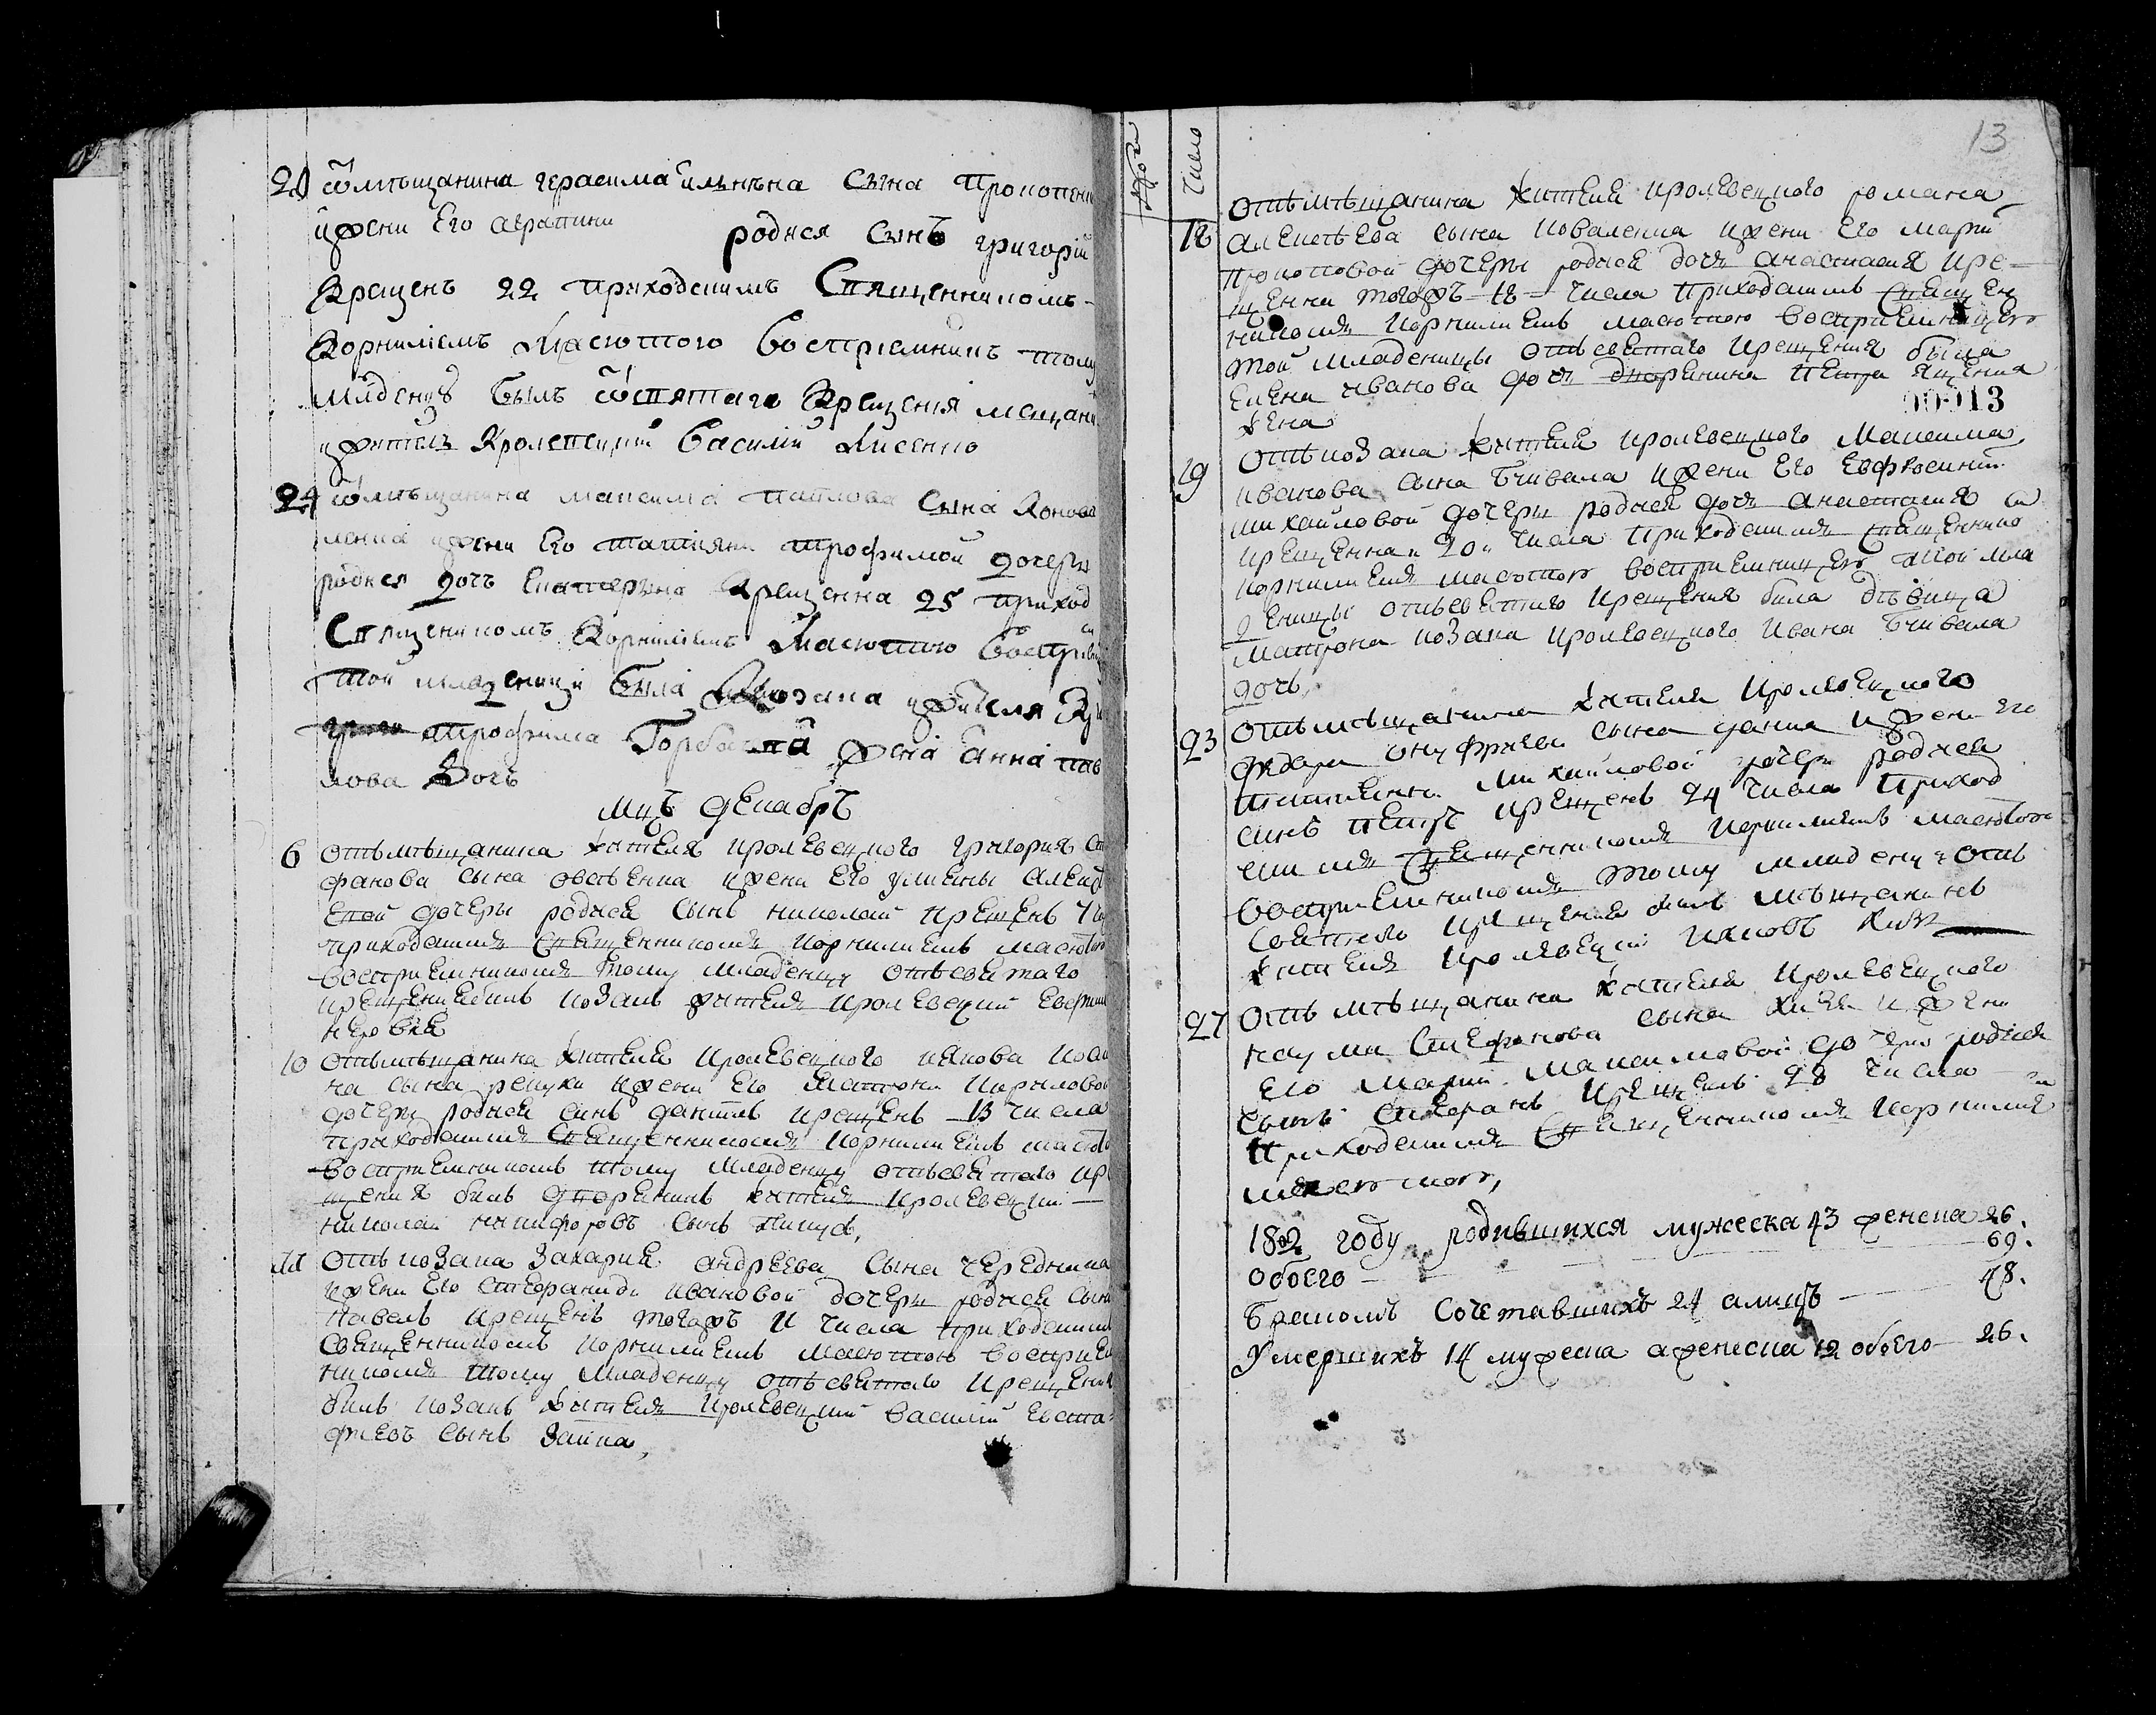 21 ѿмѣщанина герасима ильина сына Прокопенк
ижени Его аграпини родися сынъ григорій
Крещенъ 22 приходскимъ Священникомъ
Корниліемъ Масютого Восприемникъ тому
младенцу былъ ѿ святаго Крещенія мещани
ижитель Кролевецкий Василий Лисенко
24 ѿмѣщанина максима павлова сына Конова
ленка ижени Его татіяни трофимой дочери
родися дочь Екатерина Крещенна 25 приход
Священикомъ Корниліемъ Масютою Воспри
той младеници была Козака ижителя
трофима Горбаня жена анна пав
лова дочь
Мцъ декабръ
6 отъмѣщанина жителя кролевецкого григория сте
фанова сына овсѣенка ижени Его улияны алекс
еевой дочеры родися сынъ николай крещенъ 7 чи
приходскимъ священникомъ корнилиемъ масютою
восприемникомъ тому младенцу отъсвятаго
крещения билъ козакъ житель кролевецкий
10 отъмѣщанина жителя кролевецкого иякова иоан
на сына репухи ижени Его матрони кириловой
дочеры родися синъ даніилъ крещенъ 13 числа
приходскимъ священникомъ корнилиемъ масютою
восприемникомъ тому младенцу отъсвятаго кре
щения билъ дворянинъ житель кролевецкий
николай никифоровъ сынъ
11 Отъ козака захария андреева сына чередника
ижени Его стефаниди ивановой дочеры родися сынъ
павелъ крещенъ тогожъ 11 числа приходским
священникомъ корнилиемъ масютою восприем
никомъ тому младенцу отъ святаго крещения
билъ козакъ житель кролевецкий василій Евста
фиевъ сынъ Заика,
Число
13
отъмѣщанина жителя кролевецкого романа
18 алексѣева сына коваленка ижени Его марий
прокоповой дочеры родися дочь анастасия кре-
щенна тогожъ 18 числа приходскимъ священ
никомъ корнилиемъ масютою восприемницею
той младеницы отъсвятаго крещения была
Елена иванова дочь дворянина петра
жена
00013
19 отъкозака жителя кролевецкого максима
иванова сына Бчивала ижени Его Евфросиний
михайловой дочеры родися дочь анастасия
крещенна 20 числа приходскимъ священнико
корнилиемъ масютою восприемницею той мла
деницы отъсвятаго крещения била дѣвица
матрона козака кролевецкого ивана Бчивала
дочь
23 отъмѣщанина жителя кролевецкого
федора онуфриева сына ижени Его
михайловой дочеры родися
синъ петръ крещенъ 24 числа приход
скимъ священникомъ корнилиемъ масютою
восприемникомъ тому младенцу отъ
святаго крещения билъ мѣщанинъ
житель кролевецкій ияковъ
27 отъ мѣщанина жителя кролевецкого
наума стефанова сына ижени
Его марий максимовой дочери родися
сынъ стефанъ крещенъ 28 числа
приходскимъ священникомъ корнилие
масютою,
1802 году родившихся мужеска 43 женска 26.
обоего 69.
Бракомъ Сочетавшихъ 24 алицъ 48.
Умершихъ 14 мужеска аженеска 12 обоего 26.